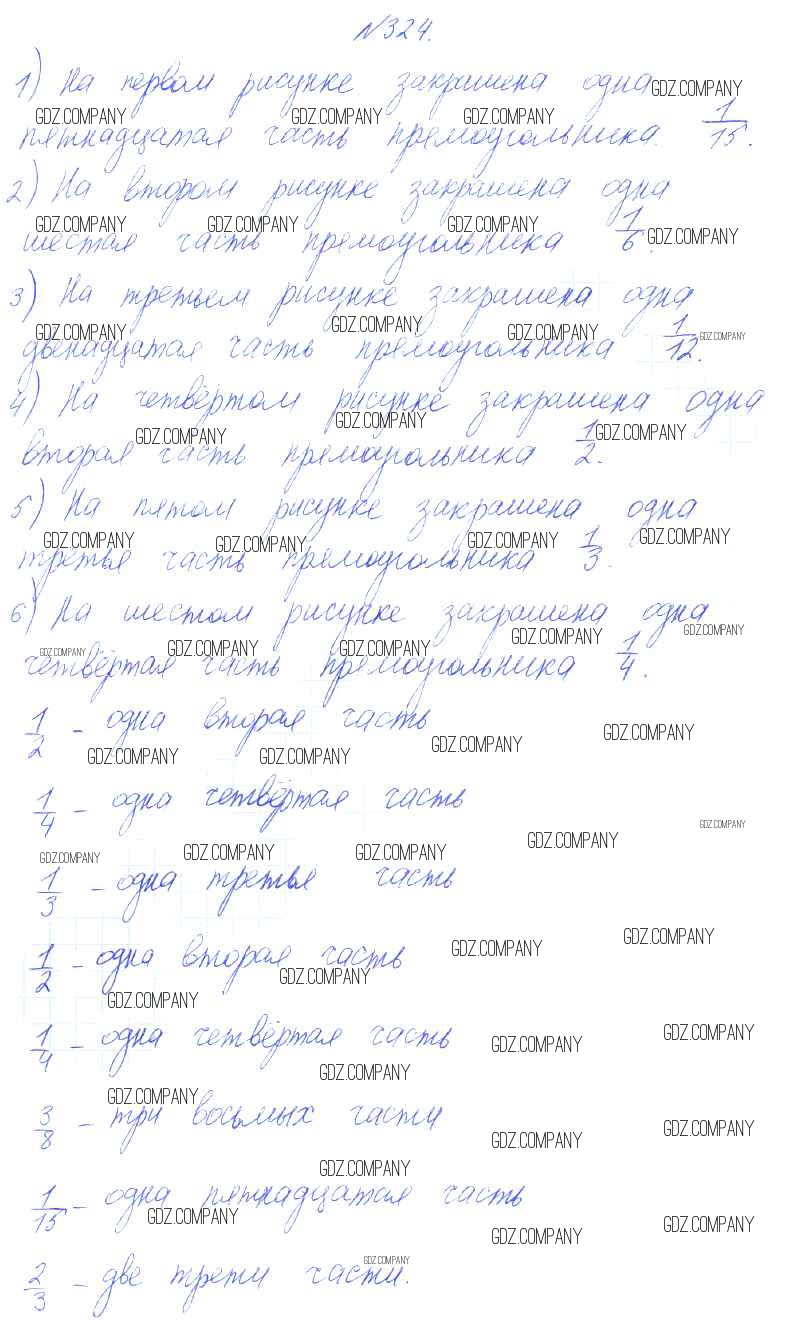 №324.
1) На первом рисунке закрашена одна
пятнадцатая часть прямоугольника. 1/15.
2) На втором рисунке закрашена одна
шестая часть прямоугольника 1/6.
3) На третьем рисунке закрашена одна
двенадцатая часть прямоугольника 1/12.
4) На четвёртом рисунке закрашена одна
вторая часть прямоугольника 1/2.
5) На пятом рисунке закрашена одна
третья часть прямоугольника 1/3.
6) На шестом рисунке закрашена одна
четвёртая часть прямоугольника 1/4.
1/2 - одна вторая часть
1/4 - одна четвёртая часть
1/3 - одна третья часть
1/2 - одна вторая часть
1/4 - одна четвёртая часть
3/8 - три восьмых части
1/15 - одна пятнадцатая часть
2/3 - две трети части.
GDZ.COMPANY